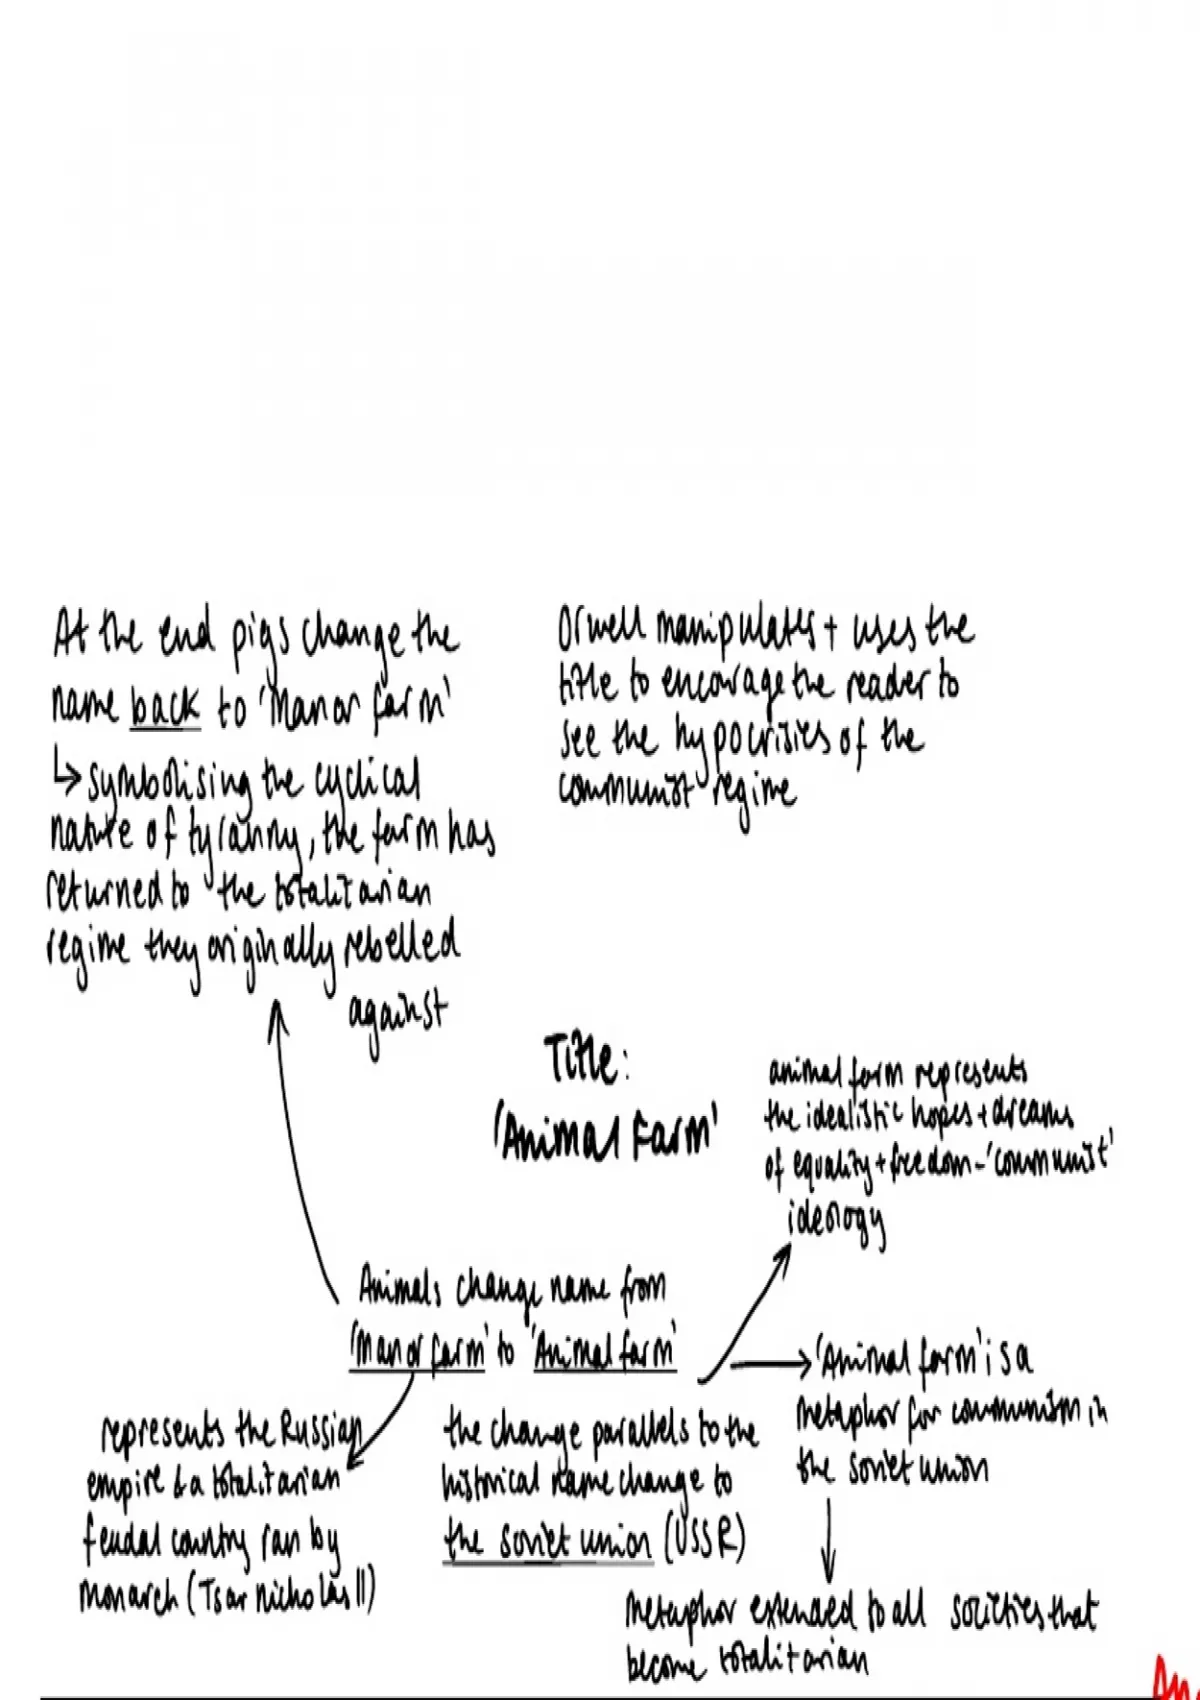 At the end pigs change the
name back to 'Manor farm'
↳ symbolising the cyclical
nature of tyranny, the farm has
returned to the totalitarian
regime they originally rebelled
against
Orwell manipulates + uses the
title to encourage the reader to
see the hypocrisies of the
communist regime
Title:
'Animal Farm'
animal farm represents
the idealistic hopes + dreams
of equality + freedom - 'communist'
ideology
Animals change name from
'Manor farm' to 'Animal farm'
represents the Russian
empire & a totalitarian
feudal country ran by
monarch (Tsar Nicholas II)
the change parallels to the
historical name change to
the soviet union (USSR)
'Animal farm' is a
metaphor for communism in
the soviet union
metaphor extended to all societies that
become totalitarian